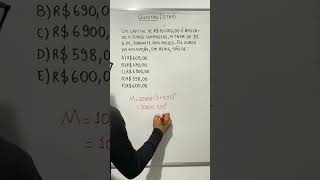 B) R$ 690,
C) R$ 6900,
D) R$ 598,0
E) R$ 600,0
M = 10
QUESTÃO (CETAP)
UM CAPITAL DE R$ 10.000,00 É APLICA-
DO A JUROS COMPOSTOS, À TAXA DE 3%
A.M, DURANTE DOIS MESES. OS JUROS
DA APLICAÇÃO, EM REAIS, SÃO DE:
A) R$ 609,00
B) R$ 690,00
C) R$ 6900,00
D) R$ 598,00
E) R$ 600,00
M = 10000 · (1 + 0,03)²
= 10000 · 1,03²